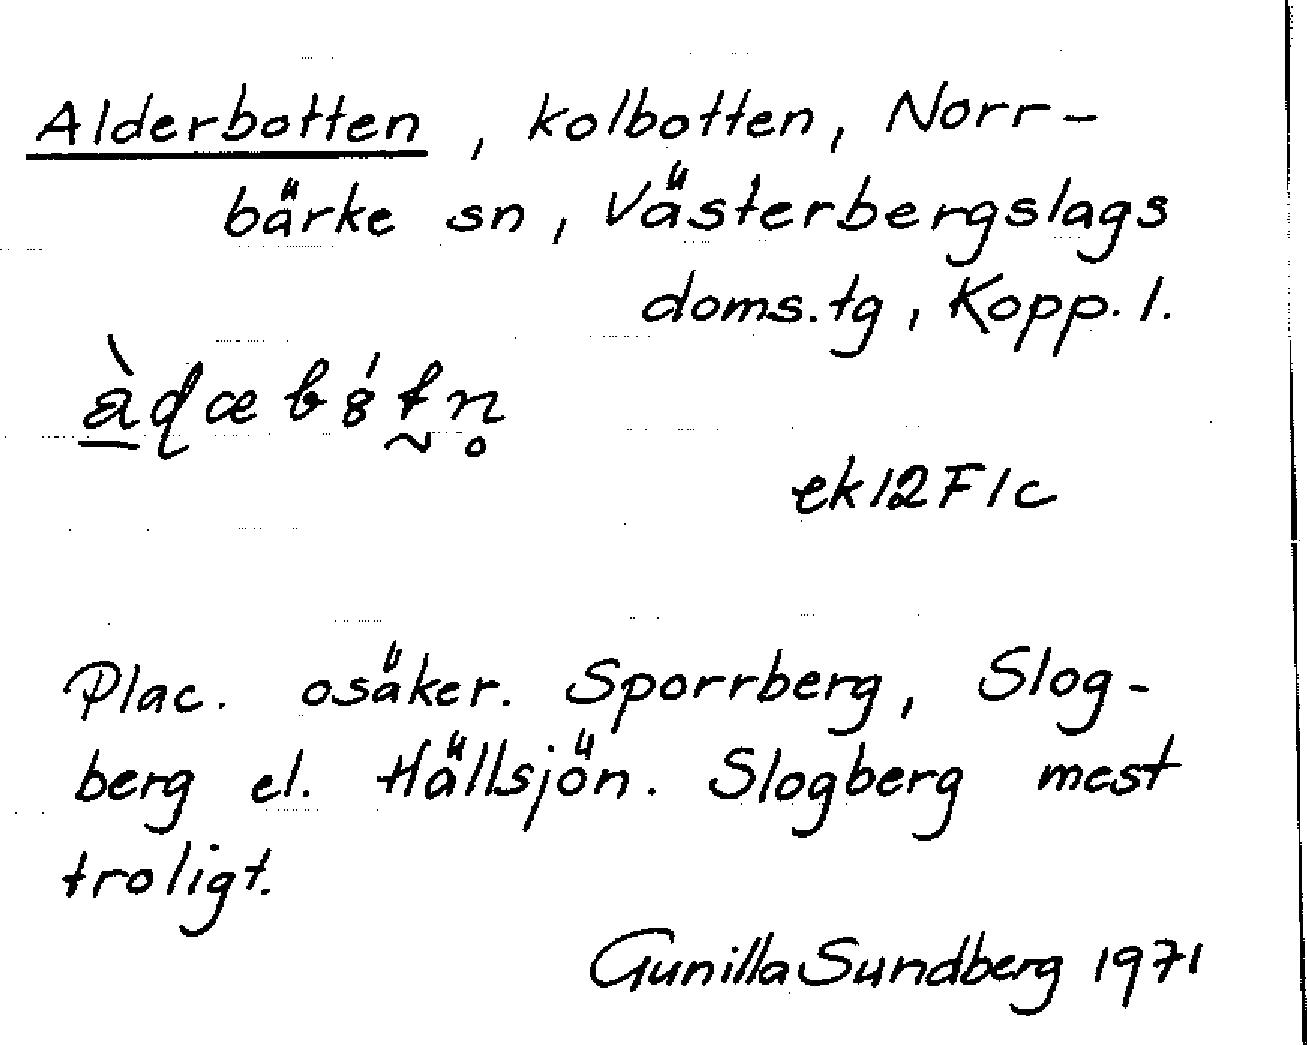 Alderbotten, kolbotten, Norr-
bärke sn, Västerbergslags
doms.tg, Kopp. l.
ek12F1c
Plac. osäker. Sporrberg, Slog-
berg el. Hällsjön. Slogberg mest
troligt.
Gunilla Sundberg 1971